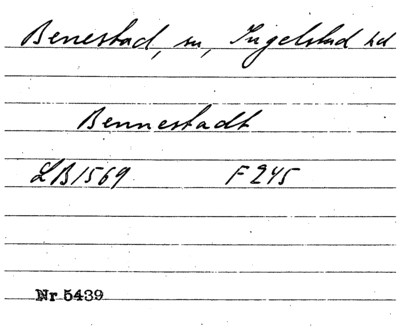 Benestad, sn, Ingelstad hd
Bennestadt
LB 1569 F 245
Nr 5439